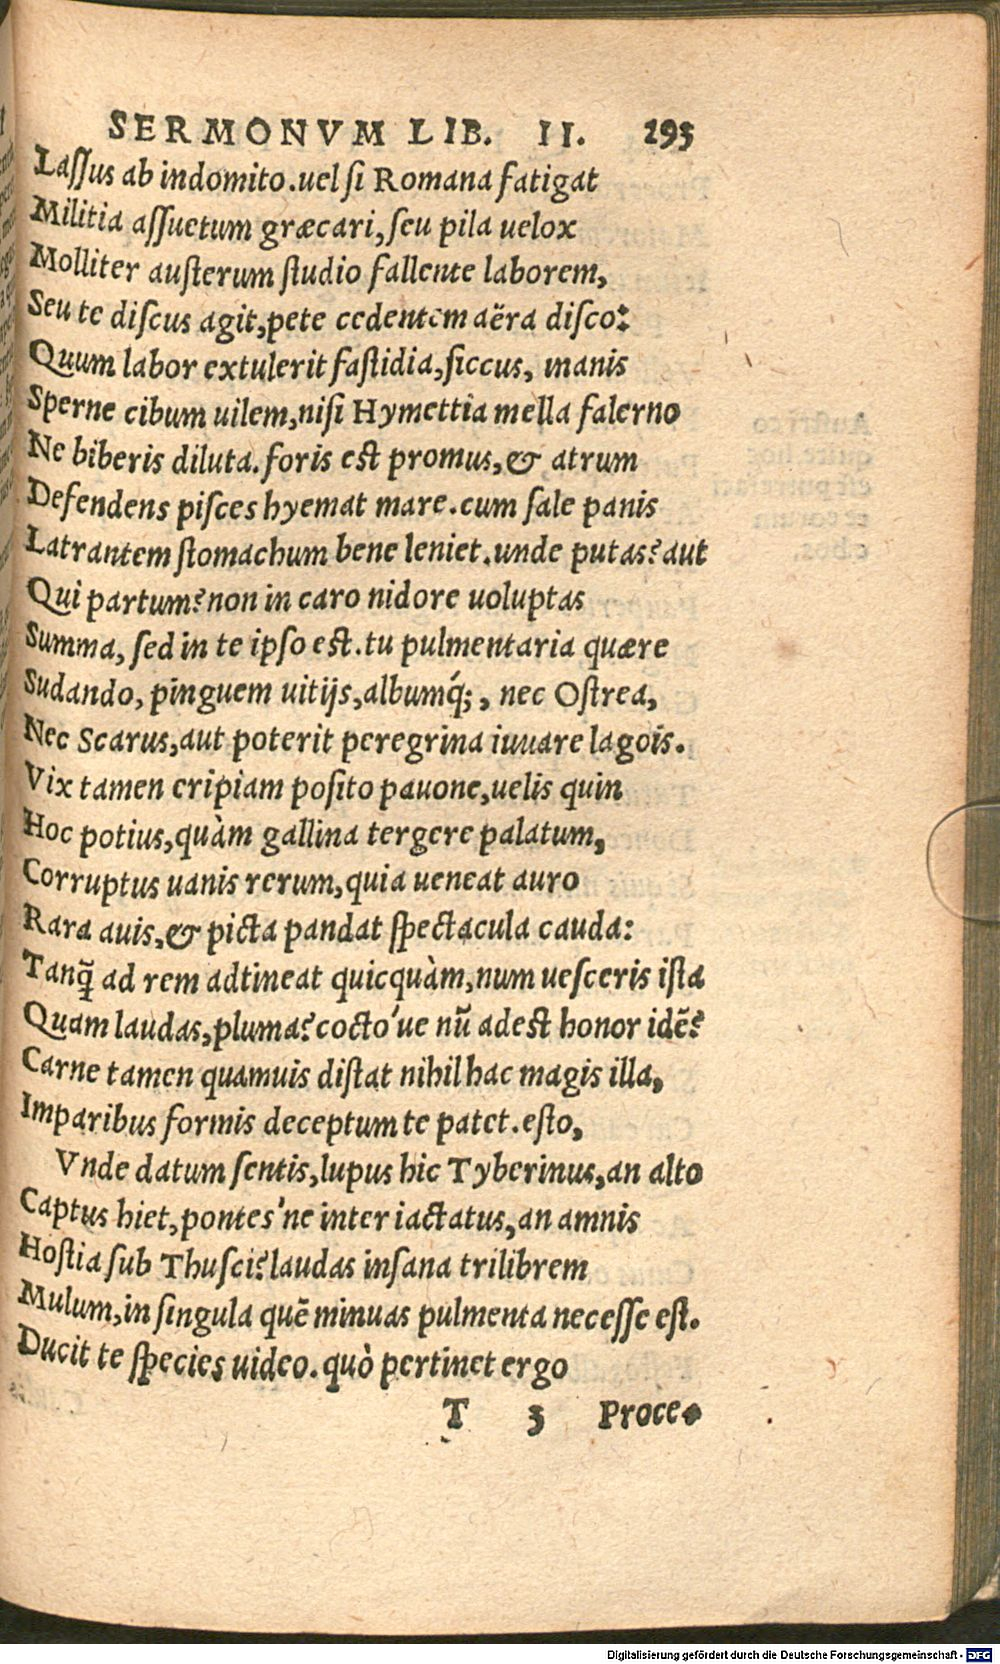 SERMONVM LIB. II. 295
Lassus ab indomito.uel si Romana fatigat
Militia assuetum græcari, seu pila uelox
Molliter austerum studio fallente laborem,
Seu te discus agit,pete cedentem aëra disco:
Quum labor extulerit fastidia,siccus, inanis
Sperne cibum uilem,nisi Hymettia mella falerno
Ne biberis diluta. foris est promus,& atrum
Defendens pisces hyemat mare.cum sale panis
Latrantem stomachum bene leniet.unde putas? aut
Qui partum? non in caro nidore uoluptas
Summa, sed in te ipso est.tu pulmentaria quære
Sudando, pinguem uitijs,albumq́;, nec Ostrea,
Nec Scarus,aut poterit peregrina iuuare lagois.
Vix tamen eripiam posito pauone,uelis quin
Hoc potius,quàm gallina tergere palatum,
Corruptus uanis rerum,quia ueneat auro
Rara auis,& picta pandat spectacula cauda:
Tanq̃ ad rem adtineat quicquàm,num uesceris ista
Quam laudas,pluma? cocto'ue nũ adest honor idẽ?
Carne tamen quamuis distat nihil hac magis illa,
Imparibus formis deceptum te patet.esto,
Vnde datum sentis,lupus hic Tyberinus,an alto
Captus hiet,pontes'ne inter iactatus,an amnis
Hostia sub Thusci? laudas insana trilibrem
Mulum,in singula quẽ minuas pulmenta necesse est.
Ducit te species uideo. quò pertinet ergo
T 3 Proce-
Digitalisierung gefördert durch die Deutsche Forschungsgemeinschaft - DFG